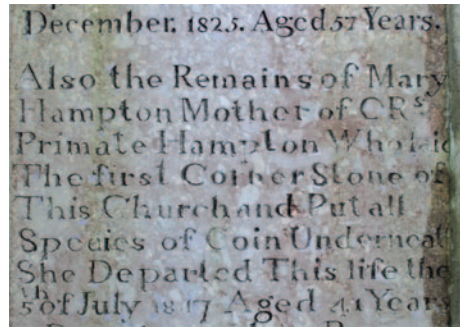 December. 1825. Aged 57 Years.
Also the Remains of Mary
Hampton Mother of CRs
Primate Hampton Who laid
The first Corner Stone of
This Church and Put all
Species of Coin Underneat
She Departed This life the
5th of July 1817 Aged 41 Years